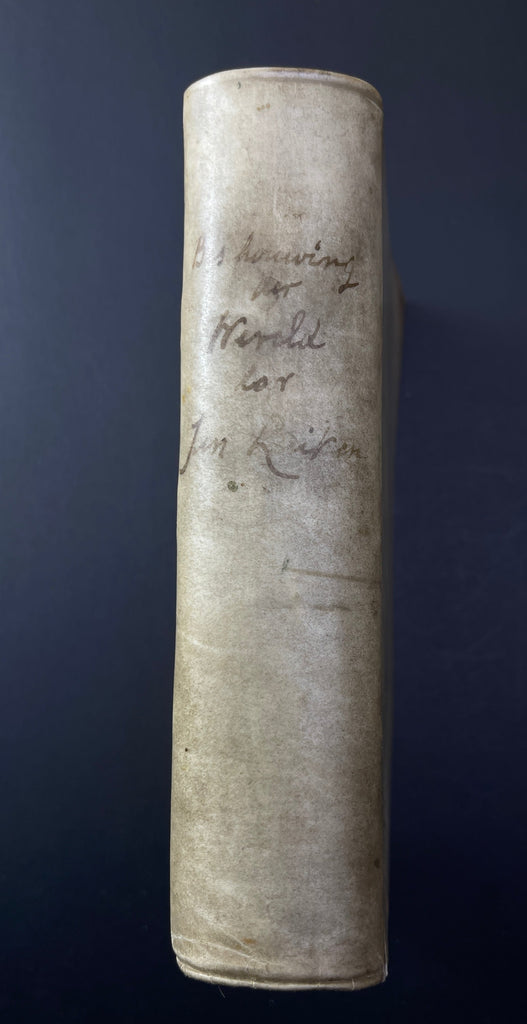 Beschouwing
der
Wereld
door
Jan Luiken